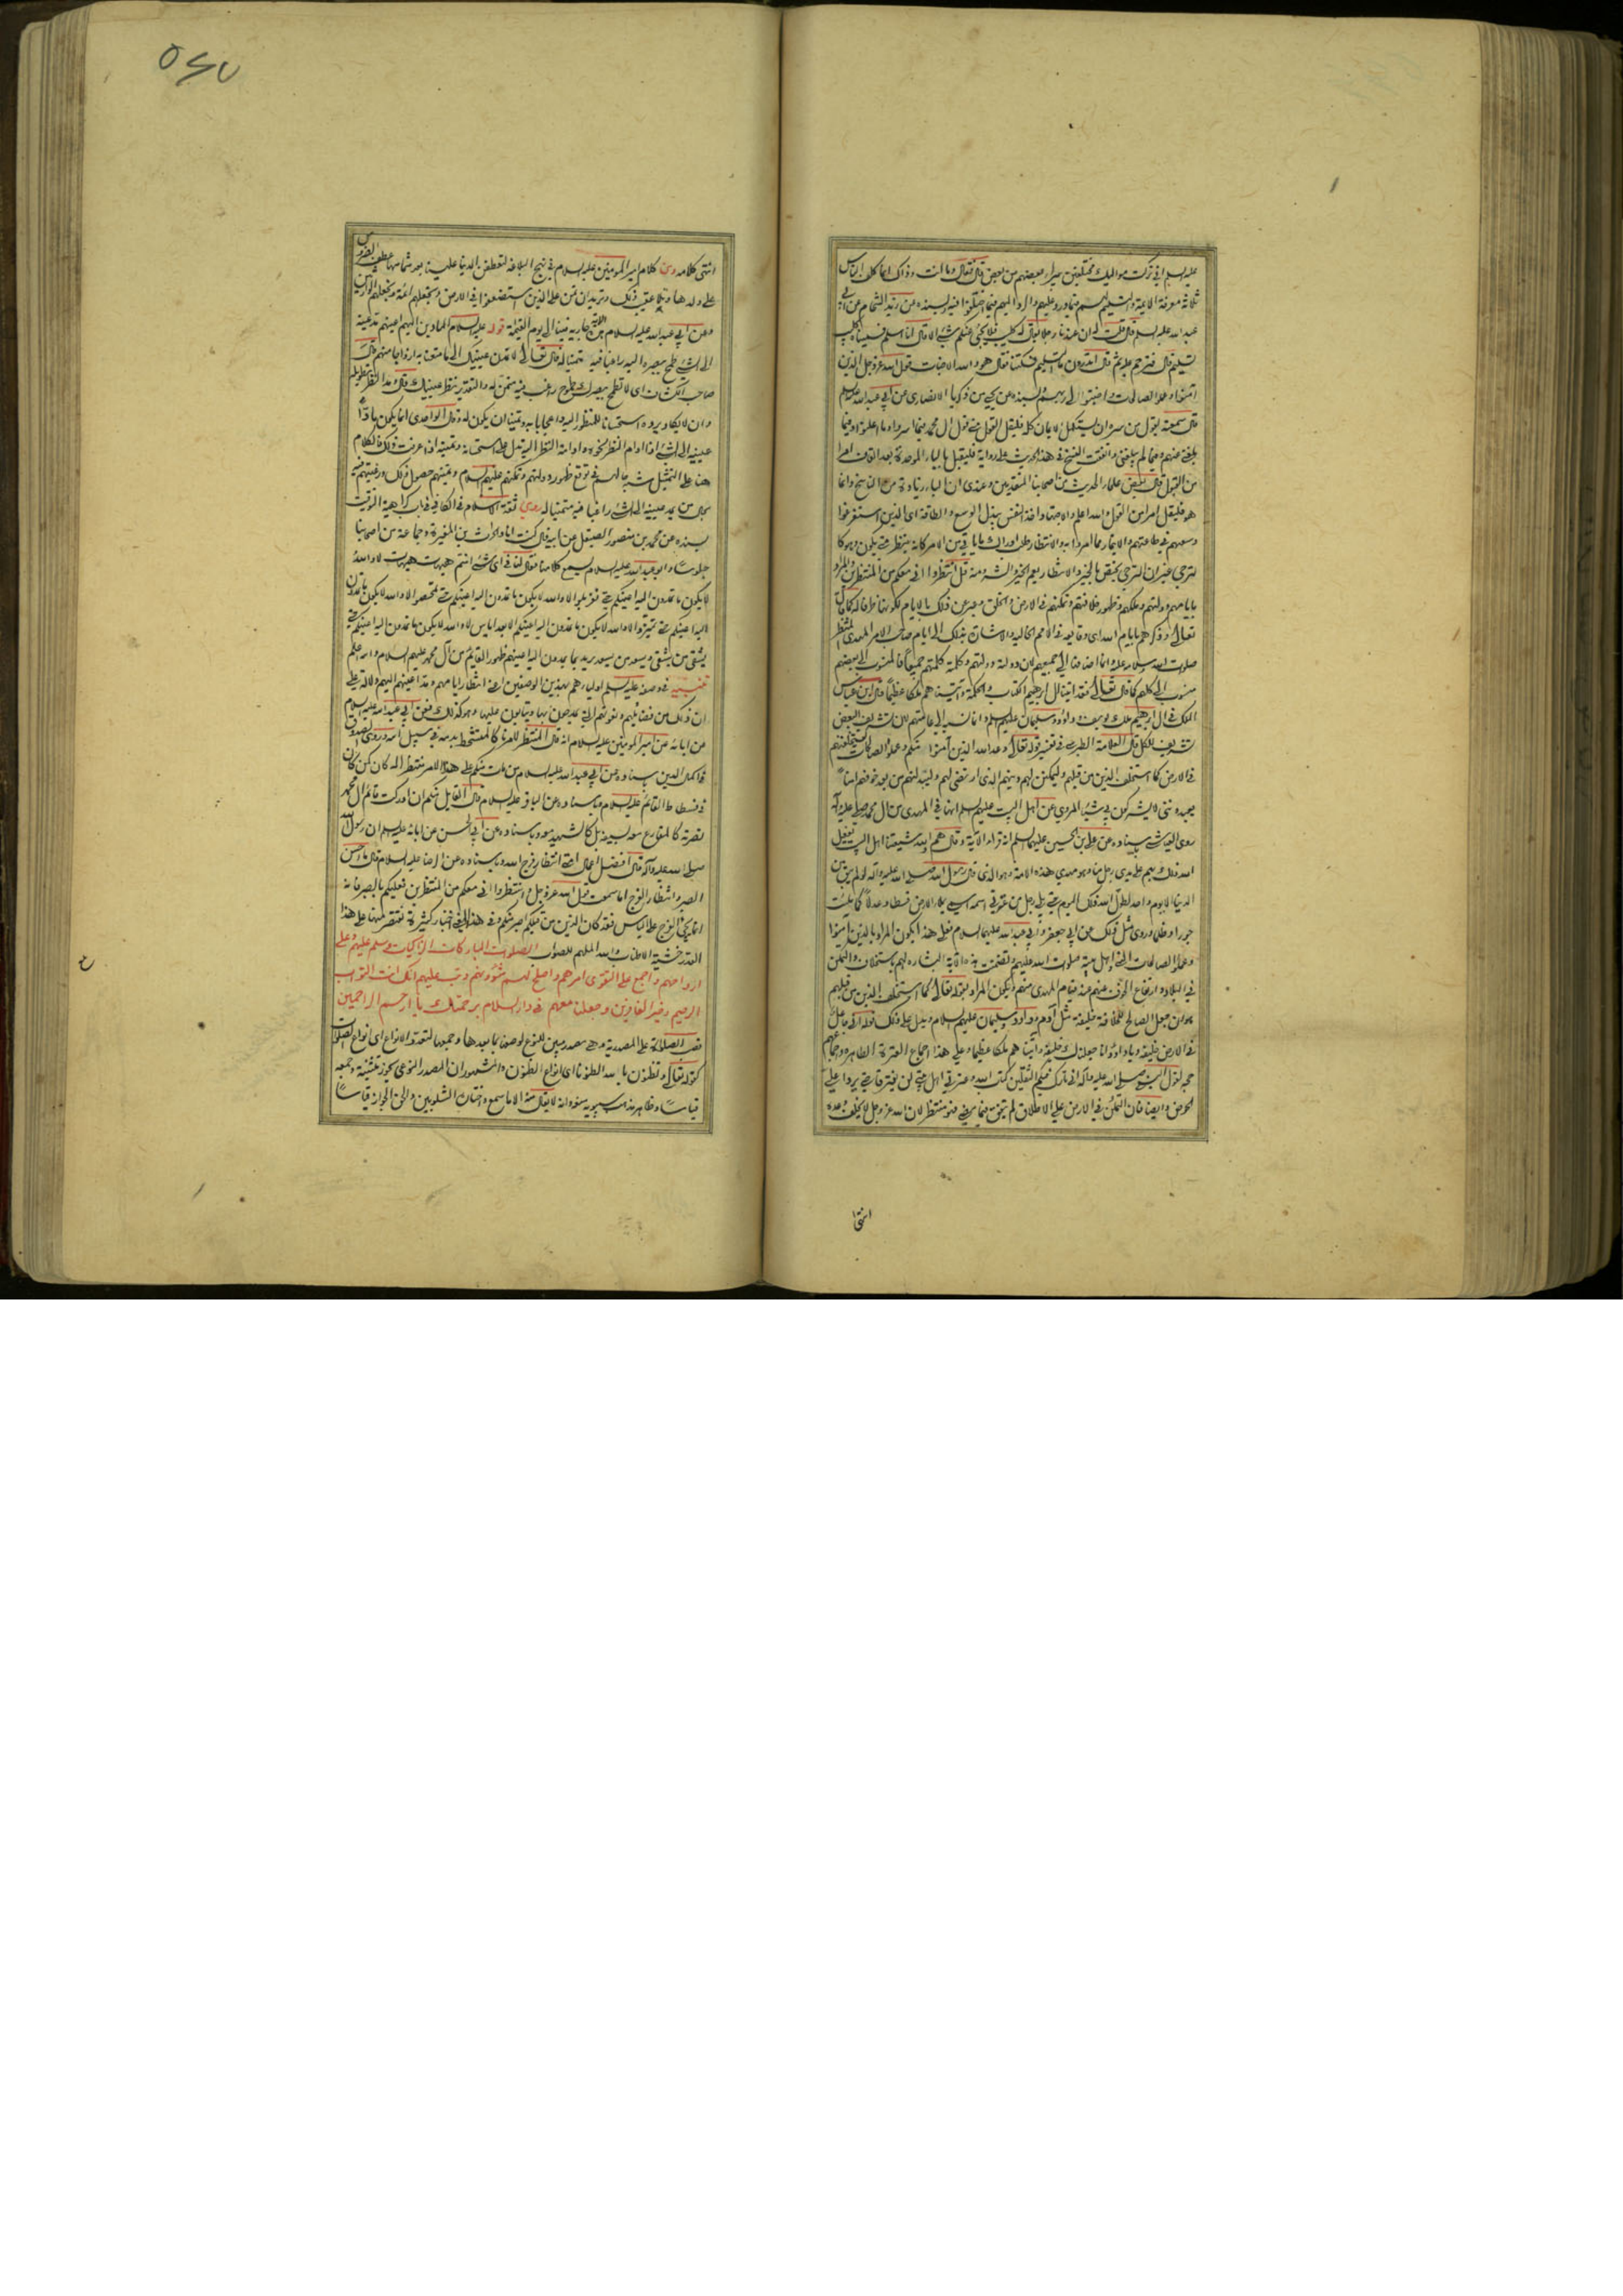 عليه السلام اني تركت مواليك مختلفين يبرأ بعضهم من بعض قال فقال وما انت وذاك انما كلف الناس
ثلاثة معرفة الائمة والتسليم لهم فيما ورد عليهم والرد اليهم فيما اختلفوا فيه وبسنده عن زيد الشحام عن ابي
عبد الله عليه السلام قال قلت له ان عندنا رجلا يقال له كليب فلا يجئ عنكم شئ الا قال انا اسلم فسميناه كليب
تسليم قال فترحم عليه ثم قال اتدرون ما التسليم فسكتنا فقال هو والله الاخبات قول الله عز وجل الذين
امنوا وعملوا الصالحات واخبتوا الى ربهم وبسنده عن يحيى بن زكريا الانصاري عن ابي عبد الله عليه السلام
قال سمعته يقول من سره ان يستكمل الايمان كله فليقل القول مني قول ال محمد فيما اسروا وما اعلنوا وفيما
بلغني عنهم وفيما لم يبلغني واتفقت النسخ في هذا الحديث على رواية فليقبل بالباء الموحدة بعد القاف امرا
من القبول قال بعض علماء الحديث من اصحابنا المتقدمين وعندي ان الباء زيادة من النساخ وانما
هو فليقل امرا من القول والله اعلم والاجتهاد اخذ النفس ببذل الوسع والطاقة اي الذين استفرغوا
وسعهم في طاعتهم والايتمار بما امروا به والانتظار طلب ادراك ما ياتي من الامر كانه ينتظر متى يكون وهو كا
لترجي غير ان الترجي يختص بالخير والانتظار يعم الخير والشر ومنه قل انتظروا اني معكم من المنتظرين والمراد
بايامهم دولتهم وملكهم وظهور خلافتهم وتمكنهم في الارض والخلق وعبر عن ذلك بالايام لكونها ظرفا له كما قال
تعالى وذكرهم بايام الله اي وقايعه في الامم الخالية والاشارة بذلك الى ايام صاحب الامر المهدي المنتظر
صلوات الله وسلامه عليه وانما اضافها الى جميعهم لان دولته دولتهم وكلمته كلمتهم جميعا فالمنسوب الى بعضهم
منسوب الى كلهم كما قال تعالى فقد اتينا ال ابرهيم الكتاب والحكمة واتيناهم ملكا عظيما قال ابن عباس
الملك في ال ابرهيم ملك يوسف وداود وسليمان عليهم السلام وانما نسبه الى عامتهم لان تشريف البعض
تشريف للكل قال العلامة الطبرسي في تفسير قوله تعالى وعد الله الذين آمنوا منكم وعملوا الصالحات ليستخلفنهم
في الارض كما استخلف الذين من قبلهم وليمكنن لهم دينهم الذي ارتضى لهم وليبدلنهم من بعد خوفهم امنا
يعبدونني لا يشركون بي شيئا المروي عن اهل البيت عليهم السلم انها في المهدي من ال محمد صلى عليه وآله
روى العياشي باسناده عن علي بن الحسين عليهما السلم انه قرا الآية وقال هم والله شيعتنا اهل البيت يفعل
الله ذلك بهم على يدي رجل منا وهو مهدي هذه الامة وهو الذي قال رسول الله صلى الله عليه وآله لو لم يبق من
الدنيا الا يوم واحد لطول الله ذلك اليوم حتى يلي رجل من عترتي اسمه اسمي يملا الارض قسطا وعدلا كما ملئت
جورا وظلما وروى مثل ذلك عن ابي جعفر وابي عبد الله عليهما السلام فعلى هذا يكون المراد بالذين آمنوا
وعملوا الصالحات النبي واهل بيته صلوات الله عليهم وتضمنت هذه الآية البشارة لهم باستخلاف والتمكن
في البلاد وارتفاع الخوف عنهم عند قيام المهدي منهم ويكون المراد بقوله تعالى كما استخلف الذين من قبلهم
هو ان جعل الصالح للخلافة خليفة مثل آدم وداود وسليمان عليهم السلام ويدل على ذلك قوله اني جاعل
في الارض خليفة ويا داود انا جعلناك خليفة واتيناهم ملكا عظيما وعلى هذا اجماع العترة الطاهرة واجماعهم
حجة لقول النبي صلى الله عليه وآله اني تارك فيكم الثقلين كتاب الله وعترتي اهل بيتي لن يفترقا حتى يردا علي
الحوض وايضا فان التمكن في الارض على الاطلاق لم يتحقق فيما مضى فهو منتظر لان الله عز وجل لا يخلف وعده
انتهى
انتهى كلامه ومن كلام امير المؤمنين عليه السلام في نهج البلاغة لتعطفن الدنيا علينا بعد شماسها عطف الضروس
على ولدها وتلا عقيب ذلك ونريد ان نمن على الذين استضعفوا في الارض ونجعلهم ائمة ونجعلهم الوارثين
وعن ابي عبد الله عليه السلام هذه الاية جارية فينا الى يوم القيمة قوله عليه السلام المادين اليهم اعينهم مد عينه
الى الشئ طمح ببصره اليه راغبا فيه متمنيا له قال تعالى لا تمدن عينيك الى ما متعنا به ازواجا منهم قال
صاحب الكشاف اي لا تطمح ببصرك طموح راغب فيه متمن له والتقدير نظر عينيك وقال مد النظر تطويله
وان لا يكاد يرده استحسانا للمنظور اليه واعجابا به وتمنيا ان يكون له وقال الواحدي انما يكون مادا
عينيه الى الشئ اذا ادام النظر نحوه وادامة النظر اليه تدل على استحسانه وتمنيه اذا عرفت ذلك فالكلام
هنا على التمثيل شبه حالهم في توقع ظهور دولتهم وتمكنهم عليهم السلام وتمنيهم حصول ذلك ورغبتهم فيه
بحال من يمد عينيه الى الشئ راغبا فيه متمنيا له روى ثقة الاسلام في الكافي في باب كراهية التوقيت
بسنده عن محمد بن منصور الصيقل عن ابيه قال كنت انا والحرث بن المغيرة وجماعة من اصحابنا
جلوسا وابو عبد الله عليه السلام يسمع كلامنا فقال لنا في اي شئ انتم هيهات هيهات لا والله
لا يكون ما تمدون اليه اعينكم حتى تغربلوا لا والله لا يكون ما تمدون اليه اعينكم حتى تمحصوا لا والله لا يكون ما تمدون
اليه اعينكم حتى تميزوا لا والله لا يكون ما تمدون اليه اعينكم الا بعد اياس لا والله لا يكون ما تمدون اليه اعينكم حتى
يشقى من يشقى ويسعد من يسعد يريد بما يمدون اليه اعينهم ظهور القائم من آل محمد عليهم السلام والله اعلم
تنبيه في وصفه عليه السلم اولياءهم بهذين الوصفين اعني انتظار ايامهم ومد اعينهم اليهم دلالة على
ان ذلك من فضائلهم ونعوتهم التي يمدحون بها ويثابون عليها وهو كذلك فعن ابي عبد الله عليه السلام
عن ابائه عن امير المؤمنين عليه السلام انه قال المنتظر لامرنا كالمتشحط بدمه في سبيل الله وروى الصدوق
في اكمال الدين باسناده عن ابي عبد الله عليه السلام من مات منكم على هذا الامر منتظرا له كان كمن كان
في فسطاط القائم عليه السلام وباسناده عن الباقر عليه السلام قال القايل منكم ان ادركت قائم ال محمد
نصرته كالمقارع معه بسيفه بل كالشهيد معه وباسناده عن ابي الحسن عن ابائه عليهم السلم ان رسول الله
صلى الله عليه وآله قال افضل اعمال امتي انتظار فرج الله وباسناده عن الرضا عليه السلام قال ما احسن
الصبر وانتظار الفرج اما سمعت قول الله عز وجل وانتظروا اني معكم من المنتظرين فعليكم بالصبر فانه
انما يجئ الفرج على الياس فقد كان الذين من قبلكم اصبر منكم وفي هذا المعنى اخبار كثيرة نقتصر منها على هذا
القدر خشية الاطناب والله الملهم للصواب الصلوات المباركات الزاكيات وسلم عليهم وعلى
ارواحهم واجمع على التقوى امرهم واصلح لهم شؤونهم وتب عليهم انك انت التواب
الرحيم وخير الغافرين وجعلنا معهم في دار السلام برحمتك يا ارحم الراحمين
نصب الصلوات على المصدرية وهي مصدر مبين للنوع لوصفها بما بعدها وجمعها لتعدد الانواع اي انواع الصلوات
كقوله تعالى وتظنون بالله الظنونا اي انواع الظنون والمشهور ان المصدر النوعي يجوز تثنيته وجمعه
قياسا وظاهر مذهب سيبويه منعه وانه لا يقال منه الا ما سمع واختاره الشلوبين والحق الجواز قياسا